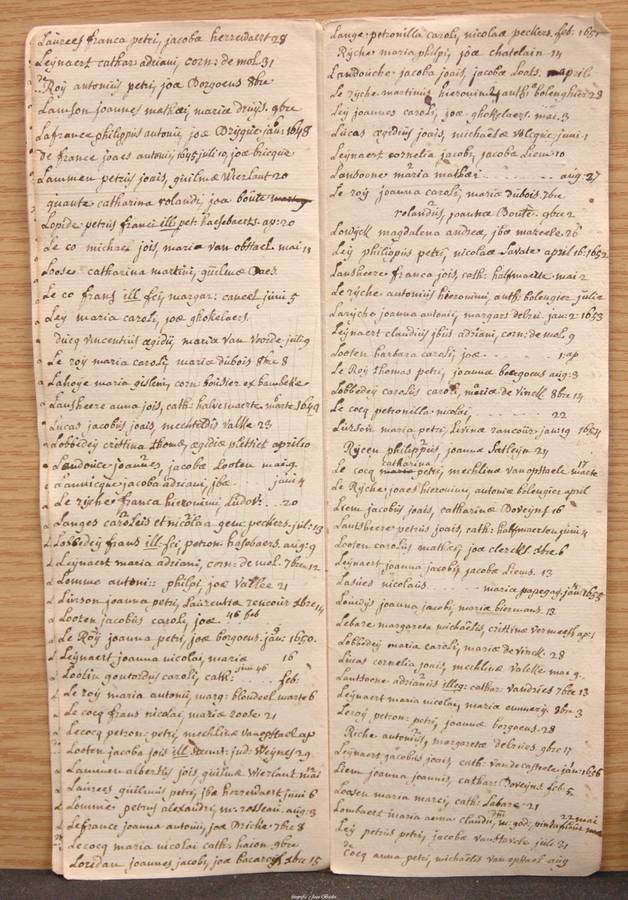 Laurees franca petri, jacoba herrewaert 28
Leynaert cathar: adriani, corn: de mol. 31
Roy antonius petri, joæ Borgoens 8bre
Lamson joannes mathei, mariæ Druÿs. 9bre
Lafrance philippus antonij, joæ Dricque jan: 1648
de france joaes antonij 1645 juli 10, joæ bricque
Lammen petrus joais, guilmæ Wierlaut 20
quante catharina rolandi, joæ boute
Lopide petrus franci ill pet. haesebaerts. ap: 20
Le co michael jois, mariæ van obstael mai 11
Loose catharina martini, guilmæ Daes
Le co frans ill fci, margar: caneel juni 5
Ley maria caroli, joæ ghokelaers.
ducq vincentius ægidij, mariæ van voorde. juli 9
Le roy maria caroli mariæ dubois 8bre 8
Lahoye maria gisleni, corn: boutier ex bambeke
Lansheere anna jois, cath: halvewaerte marte 1649
Lucas jacobus joais, mechtildis valke 23
Lobbedey cristina thomæ, ægidiæ plettiet april 10
Landouce joannes jacobæ Looten mai 9.
Lauwicque jacoba adriani, jbæ juni 4
Le ryche franca hieronimi Ludov: .. 20
Langes carolus et nicolaa gem: peckers. jul: 13
Lobbedey frans ill fci, petron: hasebaers. aug: 9
Leynaert maria adriani, corn: de mol. 7bre 12
Lomme antoni: philpi joæ Vallee 21
Lurson joanna petri, Laurentiæ rencour 8bre 14
Looten jacobus caroli, joæ 46 feb
Le Roy joanna petri, joæ borgoens. jan: 1650.
Leynaert joanna nicolai, maria 16
Lootin goutordus caroli, cath: juni 46 feb.
Le roy maria antonij, marg: blondeel marte 6
Le cocq frans nicolai, mariæ Loose 21
Lecocq petron: petri, mechlinæ van opstael ap
Looten jacoba jois ill jud: Weynes 29
Lammen albertus jois, guilmæ Wierlaut mai
Laurees guilmus petri, jbæ herrewaert juni 6
Lomme petrus alexandri, m: rosseau. aug: 3
Lefrance joanna antonij, joæ Dricke 7bre 8
Le cocq maria nicolai cath: haion. 9bre
Loridan joannes jacobi, joæ bacaron 8bre 15
Lange petronilla caroli, nicolaæ peckers. feb. 1651
Ryche maria philpi, joæ chatelain 14
Landouche jacoba joais, jacobæ Loots. april
Le ryche martinus hieronimi, anth: bolenghier 23
Ley joannes caroli, joæ ghokelaers. mai. 3
Lucas ægidius joais, michaelæ volcque juni 1
Leynaert cornelia jacobi, jacobæ Liem 10
Lanboone maria mathæi ....... aug. 27
Le roy joanna caroli, mariæ dubois. 7bre
rolandus, joanna Boute. 9bre 2
Lowyck magdalena andreæ, jbæ mareele. 26
Ley philippus petri, nicolaæ Savate april 16: 1652
Lansheere franca jois, cath: halfmaerte mai 2
Le ryche antonius hieronimi, anth: bolengier julij
Laryche joanna antonij, margar: delrei. jan: 2 1653
Leynaert claudius jbus adriani, corn: de mol. 9
Looten barbara caroli, joæ ....... 1: ap
Le Roy thomas petri, joanna borgoens aug: 3
Lobbedey carolus caroli, mariæ de vinck 8bre 14
Le cocq petronilla nicolai, ....... 22
Lurson maria petri, Livinæ rancour: jan: 9 1654
Rycen philippus, joanna Satleijn 24
Le cocq catharina petri, mechlina van opstaele 17 marte
Le Ryche joaes hieronimi, antoniæ bolengier april
Liem jacobus joais, catharinæ Doveyns 16
Lantsheere petrus joais, cath: halfmaerson juni 4
Looten carolus mathæi, joæ clercks 8bre 6
Leynaert joanna jacobi, jacobæ Liems. 13
Lasües nicolais ........ maria papegay. jan: 1655
Louwys joanna jacobi, mariæ biermans. 13
Lebare margareta michaelis, cristinæ vermeesh ap: 1
Lobbedey maria caroli, mariæ de vinck. 28
Lucas cornelia joais, mechlinæ valcke mai 9.
Lantsoone adrianus illeg: cathar: vandries 7bre 13
Leynaert maria nicolai, maria emmerij. 8bre 3
Leroy petron: petri, joannæ borgoens. 28
Riche antonius, margaretæ delrues. 9bre 17
Leynaert jacobus joais, cath: van de casteele jan: 1656
Liem joanna joannis, cathar: Doveyns feb: 5
Loosen maria marci, cath: Labare 21
Lombaert maria anna claudii, m: god: 22 mai
Ley petrus petri, jacobæ vanstavele juli 21
de cocq anna petri, michaelis van opstael aug